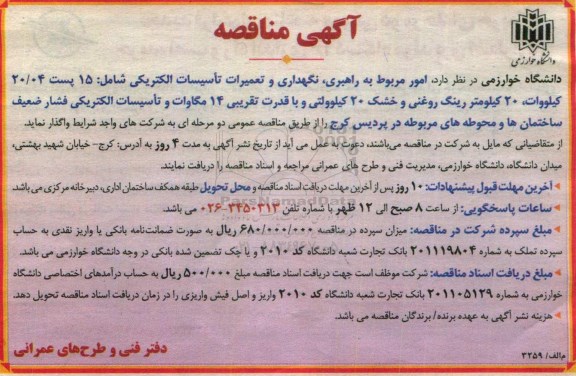 آگهی مناقصه
دانشگاه خوارزمی
دانشگاه خوارزمی در نظر دارد، امور مربوط به راهبری، نگهداری و تعمیرات تأسیسات الکتریکی شامل: ۱۵ پست ۲۰/۰۴
کیلووات، ۲۰ کیلومتر رینگ روغنی و خشک ۲۰ کیلوولتی و با قدرت تقریبی ۱۴ مگاوات و تأسیسات الکتریکی فشار ضعیف
ساختمان ها و محوطه های مربوطه در پردیس کرج را از طریق مناقصه عمومی دو مرحله ای به شرکت های واجد شرایط واگذار نماید.
از متقاضیانی که مایل به شرکت در مناقصه می‌باشند، دعوت به عمل می آید از تاریخ نشر آگهی به مدت ۴ روز به آدرس: کرج- خیابان شهید بهشتی،
میدان دانشگاه، دانشگاه خوارزمی، مدیریت فنی و طرح های عمرانی مراجعه و اسناد مناقصه را دریافت نمایند.
آخرین مهلت قبول پیشنهادات: ۱۰ روز پس از آخرین مهلت دریافت اسناد مناقصه و محل تحویل طبقه همکف ساختمان اداری، دبیرخانه مرکزی می‌باشد.
ساعات پاسخگویی: از ساعت ۸ صبح الی ۱۲ ظهر با شماره تلفن ۳۴۵۰۳۱۳-۰۲۶ می باشد.
مبلغ سپرده شرکت در مناقصه: میزان سپرده در مناقصه ۶۸۰/۰۰۰/۰۰۰ ریال به صورت ضمانت‌نامه بانکی یا واریز نقدی به حساب
سپرده تملک به شماره ۲۰۱۱۱۹۸۰۴ بانک تجارت شعبه دانشگاه کد ۲۰۱۰ و یا چک تضمین شده بانکی در وجه دانشگاه خوارزمی می باشد.
مبلغ دریافت اسناد مناقصه: شرکت موظف است جهت دریافت اسناد مناقصه مبلغ ۵۰۰/۰۰۰ ریال به حساب درآمدهای اختصاصی دانشگاه
خوارزمی به شماره ۲۰۱۱۰۵۱۲۹ بانک تجارت شعبه دانشگاه کد ۲۰۱۰ واریز و اصل فیش واریزی را در زمان دریافت اسناد مناقصه تحویل دهد.
هزینه نشر آگهی به عهده برنده/ برندگان مناقصه می باشد.
دفتر فنی و طرح‌های عمرانی
م/الف/ ۳۲۵۹